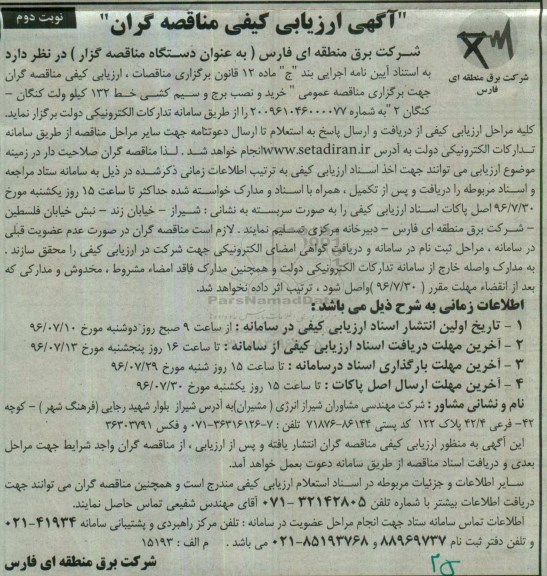 "آگهی ارزیابی کیفی مناقصه گران"
نوبت دوم
شرکت برق منطقه ای
فارس
شرکت برق منطقه ای فارس ( به عنوان دستگاه مناقصه گزار ) در نظر دارد
به استناد آیین نامه اجرایی بند "ج" ماده ۱۲ قانون برگزاری مناقصات ، ارزیابی کیفی مناقصه گران
جهت برگزاری مناقصه عمومی " خرید و نصب برج و سیم کشی خط ۱۳۲ کیلو ولت کنگان -
کنگان ۲ "به شماره ۲۰۰۹۶۱۰۴۶۰۰۰۰۷۷ را از طریق سامانه تدارکات الکترونیکی دولت برگزار نماید.
کلیه مراحل ارزیابی کیفی از دریافت و ارسال پاسخ به استعلام تا ارسال دعوتنامه جهت سایر مراحل مناقصه از طریق سامانه
تدارکات الکترونیکی دولت به آدرس www.setadiran.ir انجام خواهد شد . لذا مناقصه گران صلاحیت دار در زمینه
موضوع ارزیابی می توانند جهت اخذ اسناد ارزیابی کیفی به ترتیب اطلاعات زمانی ذکرشده در ذیل به سامانه ستاد مراجعه
و اسناد مربوطه را دریافت و پس از تکمیل ، همراه با اسناد و مدارک خواسته شده حداکثر تا ساعت ۱۵ روز یکشنبه مورخ
۹۶/۷/۳۰ اصل پاکات اسناد ارزیابی کیفی را به صورت سربسته به نشانی : شیراز - خیابان زند - نبش خیابان فلسطین
- شرکت برق منطقه ای فارس - دبیرخانه مرکزی تسلیم نمایند . لازم است مناقصه گران در صورت عدم عضویت قبلی
در سامانه ، مراحل ثبت نام در سامانه و دریافت گواهی امضای الکترونیکی جهت شرکت در ارزیابی کیفی را محقق سازند .
به مدارک واصله خارج از سامانه تدارکات الکترونیکی دولت و همچنین مدارک فاقد امضاء مشروط ، مخدوش و مدارکی که
بعد از انقضاء مهلت مقرر ( ۹۶/۷/۳۰ )واصل شود ، ترتیب اثر داده نخواهد شد.
اطلاعات زمانی به شرح ذیل می باشد :
۱ - تاریخ اولین انتشار اسناد ارزیابی کیفی در سامانه : از ساعت ۹ صبح روز دوشنبه مورخ ۹۶/۰۷/۱۰
۲ - آخرین مهلت دریافت اسناد ارزیابی کیفی از سامانه : تا ساعت ۱۶ روز پنجشنبه مورخ ۹۶/۰۷/۱۳
۳ - آخرین مهلت بارگذاری اسناد درسامانه : تا ساعت ۱۵ روز شنبه مورخ ۹۶/۰۷/۲۹
۴ - آخرین مهلت ارسال اصل پاکات : تا ساعت ۱۵ روز یکشنبه مورخ ۹۶/۰۷/۳۰
نام و نشانی مشاور : شرکت مهندسی مشاوران شیراز انرژی ( مشیران)به آدرس شیراز بلوار شهید رجایی (فرهنگ شهر ) - کوچه
۴۲- فرعی ۴۲/۴ پلاک ۱۲۲ کد پستی ۸۶۱۴۴-۷۱۸۷۶ تلفن : ۷-۳۶۳۱۶۱۲۶-۰۷۱ و فکس ۳۶۳۰۳۷۹۱
این آگهی به منظور ارزیابی کیفی مناقصه گران انتشار یافته و پس از ارزیابی ، از مناقصه گران واجد شرایط جهت مراحل
بعدی و دریافت اسناد مناقصه از طریق سامانه دعوت بعمل خواهد آمد.
سایر اطلاعات و جزئیات مربوطه در اسناد استعلام ارزیابی کیفی مندرج است و همچنین مناقصه گران می توانند جهت
دریافت اطلاعات بیشتر با شماره تلفن ۳۲۱۴۲۸۰۵-۰۷۱ آقای مهندس شفیعی تماس حاصل نمایند.
اطلاعات تماس سامانه ستاد جهت انجام مراحل عضویت در سامانه : تلفن مرکز راهبردی و پشتیبانی سامانه ۴۱۹۳۴-۰۲۱
و تلفن دفتر ثبت نام ۸۸۹۶۹۷۳۷ و ۸۵۱۹۳۷۶۸-۰۲۱ می باشد . م الف : ۱۵۱۹۳
شرکت برق منطقه ای فارس